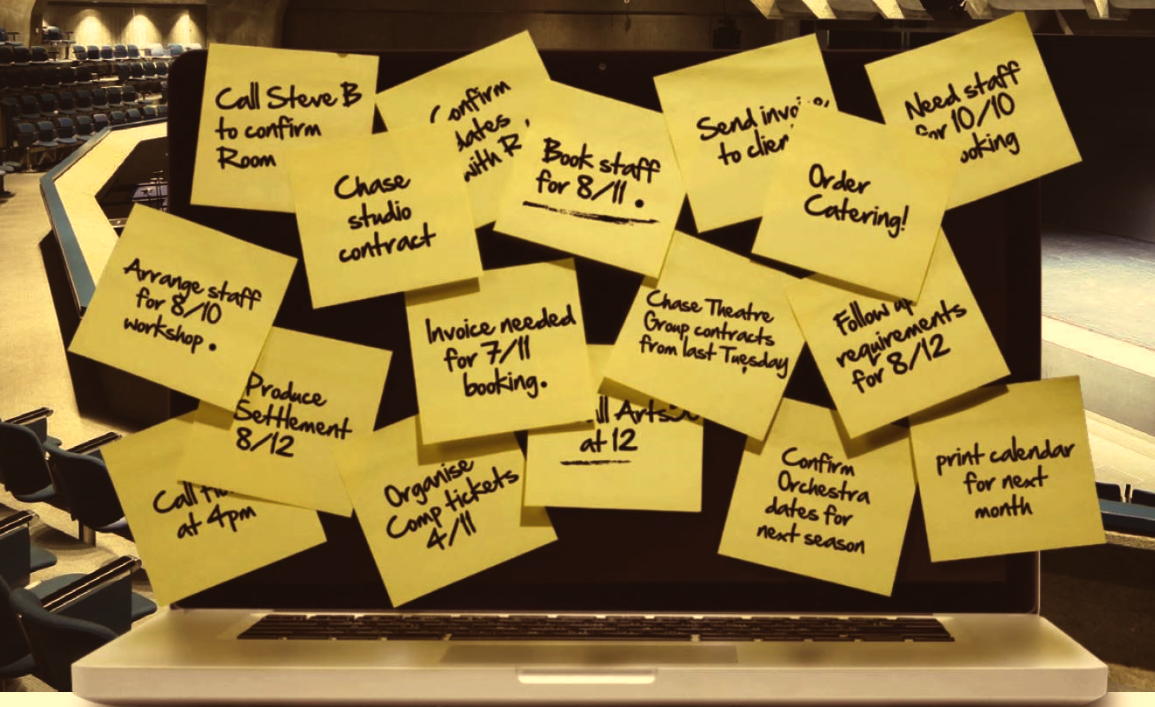 Call Steve B
to confirm
Room
Confirm
dates
with R
Book staff
for 8/11.
Send
to
Need staff
for 10/10
Chase
studio
contract
Order
Catering!
Arrange staff
for 8/10
workshop.
Invoice needed
for 7/11
booking.
Chase Theatre
Group contracts
from last Tuesday
Follow up
requirements
for 8/12
Produce
Settlement
8/12
Call
at 4pm
Organise
Comp tickets
4/11
at 12
Confirm
Orchestra
dates for
next season
print calendar
for next
month